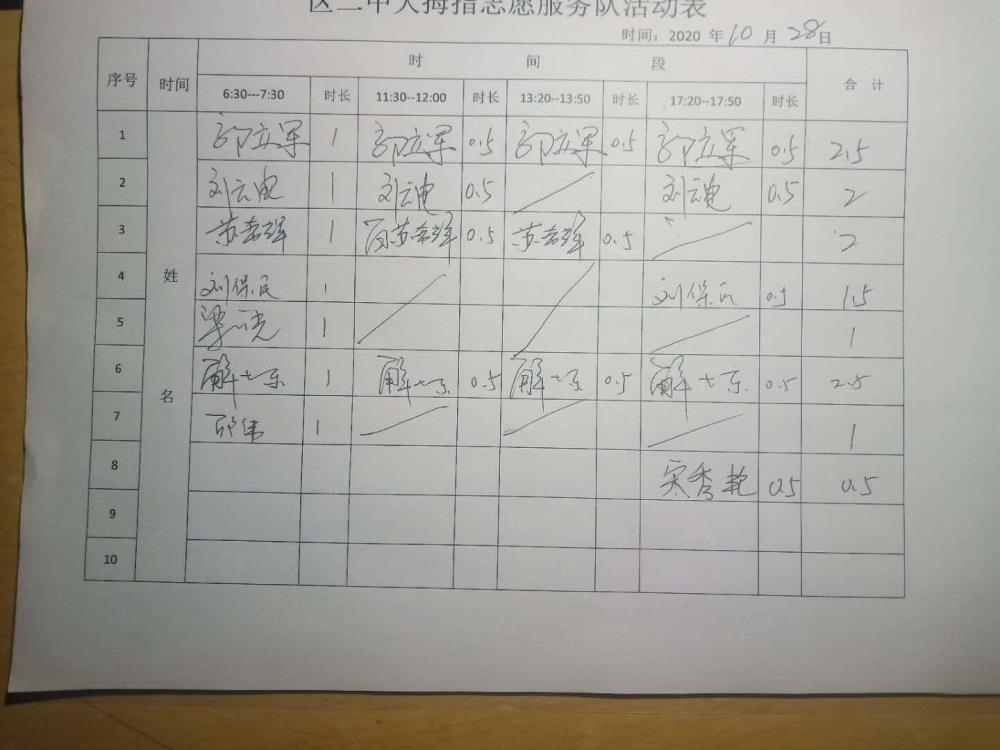 区二中大拇指志愿服务队活动表
时间：2020 年 10 月 28 日
序号 时间 时 间 段 合 计
6:30---7:30 时长 11:30--12:00 时长 13:20--13:50 时长 17:20--17:50 时长
姓 名
1 郭立军 1 郭立军 0.5 郭立军 0.5 郭立军 0.5 2.5
2 刘云电 1 刘云电 0.5 刘云电 0.5 2
3 1 0.5 0.5 2
4 刘保民 1 刘保民 0.5 1.5
5 1 1
6 解士东 1 解士东 0.5 解士东 0.5 解士东 0.5 2.5
7 1 1
8 宋秀艳 0.5 0.5
9
10